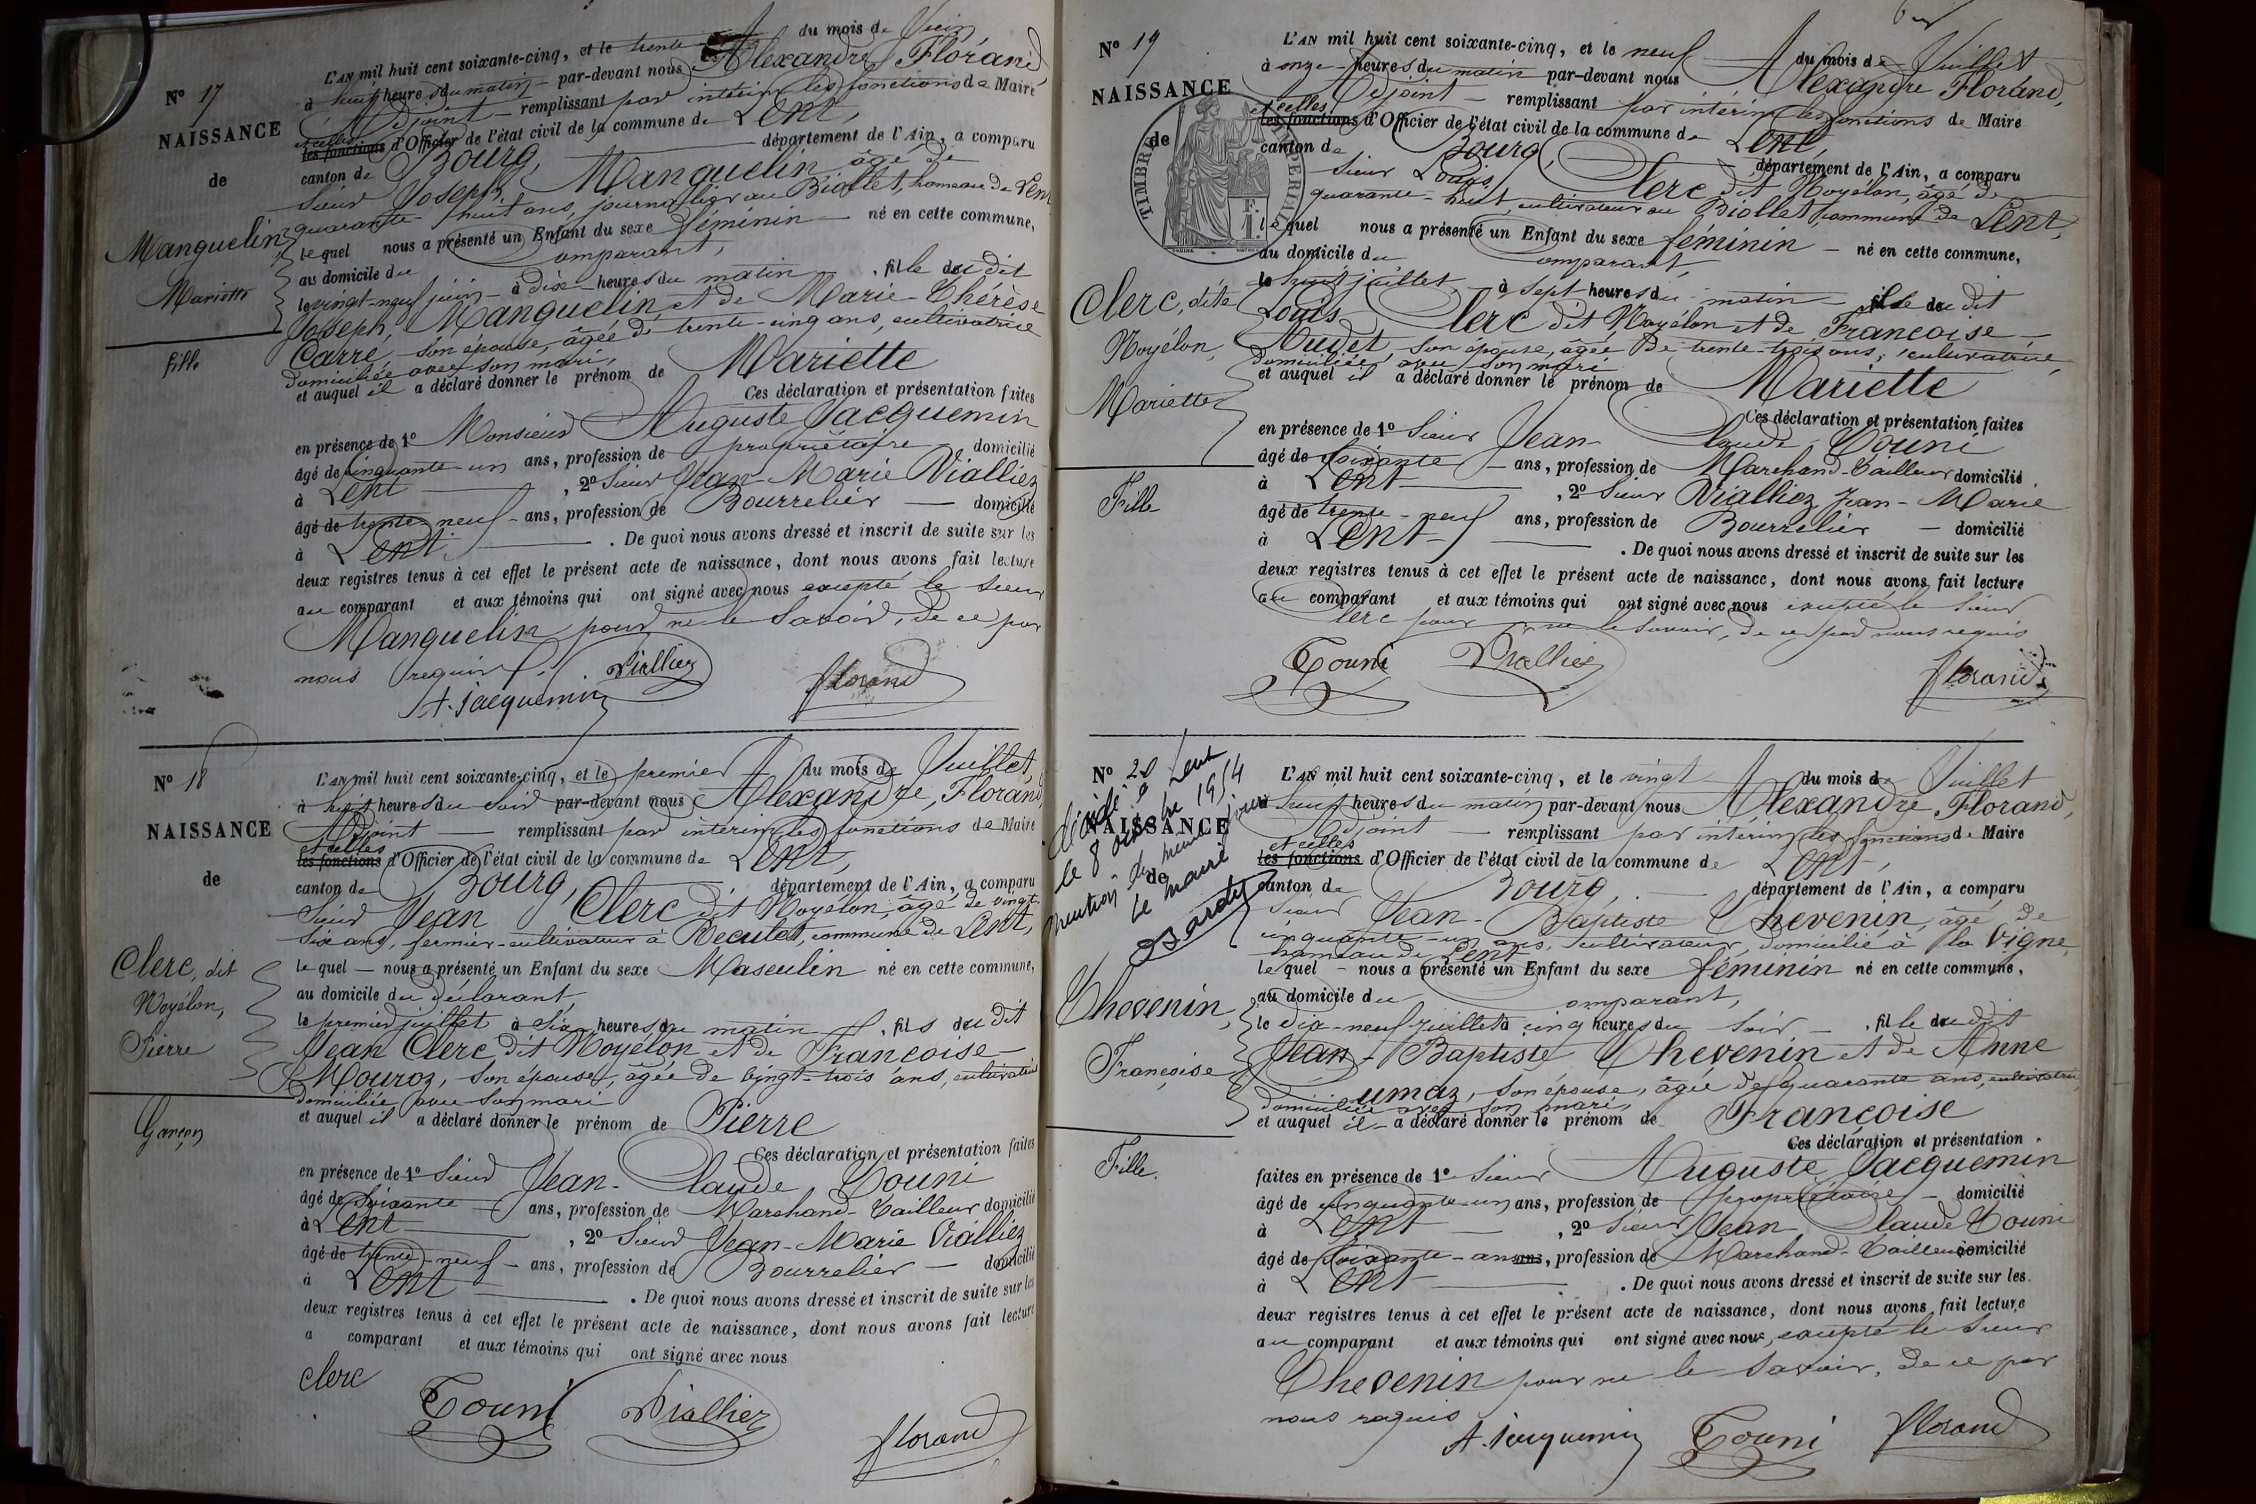 N° 17
NAISSANCE
de
Manquelin
Mariette
fille
L'AN mil huit cent soixante-cinq, et le trente du mois de Juin
à huit heures du matin par-devant nous Alexandre Florand,
Adjoint remplissant par intérim les fonctions de Maire
et celles
les fonctions d'Officier de l'état civil de la commune de Lent,
canton de Bourg, département de l'Ain, a comparu
Sieur Joseph Manquelin âgé de
quarante-huit ans, journalier au Biollet, hameau de Lent
le quel nous a présenté un Enfant du sexe féminin né en cette commune,
au domicile du comparant,
le vingt-neuf juin à dix heures du matin, fille du dit
Joseph Manquelin et de Marie-Thérèse
Carré, son épouse, âgée de trente-cinq ans, cultivatrice
domiciliée avec son mari,
et auquel il a déclaré donner le prénom de Mariette
Ces déclaration et présentation faites
en présence de 1° Monsieur Auguste Jacquemin
âgé de cinquante-un ans, profession de propriétaire domicilié
à Lent, 2° Sieur Jean-Marie Vialliez
âgé de trente-neuf ans, profession de Bourrelier domicilié
à Lent. De quoi nous avons dressé et inscrit de suite sur les
deux registres tenus à cet effet le présent acte de naissance, dont nous avons fait lecture
au comparant et aux témoins qui ont signé avec nous excepté le sieur
Manquelin pour ne le savoir, de ce par
nous requis.
A. Jacquemin Vialliez Florand
N° 18
NAISSANCE
de
Clerc, dit
Noyélon,
Pierre
Garçon
L'AN mil huit cent soixante-cinq, et le premier du mois de Juillet,
à huit heures du soir par-devant nous Alexandre, Florand
Adjoint remplissant par intérim les fonctions de Maire
et celles
les fonctions d'Officier de l'état civil de la commune de Lent,
canton de Bourg, département de l'Ain, a comparu
Sieur Jean Clerc dit Noyélon, âgé de vingt
six ans, fermier-cultivateur à Reculet, commune de Lent,
le quel nous a présenté un Enfant du sexe Masculin né en cette commune,
au domicile du déclarant,
le premier juillet à six heures du matin, fils du dit
Jean Clerc dit Noyélon et de Françoise
Mouroz, son épouse, âgée de vingt-trois ans, cultivatrice
domiciliée avec son mari
et auquel il a déclaré donner le prénom de Pierre
Ces déclaration et présentation faites
en présence de 1° Sieur Jean-Claude Couni
âgé de soixante ans, profession de Marchand-Tailleur domicilié
à Lent, 2° Sieur Jean-Marie Vialliez
âgé de trente-neuf ans, profession de Bourrelier domicilié
à Lent. De quoi nous avons dressé et inscrit de suite sur les
deux registres tenus à cet effet le présent acte de naissance, dont nous avons fait lecture
a comparant et aux témoins qui ont signé avec nous
Clerc Couni Vialliez Florand
N° 19
NAISSANCE
de
TIMBRE IMPERIAL
Clerc, dite
Noyélon,
Mariette
Fille
L'AN mil huit cent soixante-cinq, et le neuf du mois de Juillet
à onze heures du matin par-devant nous Alexandre Florand,
Adjoint remplissant par intérim les fonctions de Maire
et celles
les fonctions d'Officier de l'état civil de la commune de Lent,
canton de Bourg, département de l'Ain, a comparu
Sieur Louis Clerc dit Noyélon, âgé de
quarante-huit, cultivateur au Biollet, commune de Lent,
le quel nous a présenté un Enfant du sexe féminin né en cette commune,
au domicile du comparant,
le huit juillet à sept heures du matin fille du dit
Louis Clerc dit Noyélon et de Françoise
Audet, son épouse, âgée de trente-trois ans, cultivatrice,
domiciliée avec son mari
et auquel il a déclaré donner le prénom de Mariette
Ces déclaration et présentation faites
en présence de 1° Sieur Jean Claude Couni
âgé de soixante ans, profession de Marchand-Tailleur domicilié
à Lent, 2° Sieur Vialliez Jean-Marie
âgé de trente-neuf ans, profession de Bourrelier domicilié
à Lent. De quoi nous avons dressé et inscrit de suite sur les
deux registres tenus à cet effet le présent acte de naissance, dont nous avons fait lecture
au comparant et aux témoins qui ont signé avec nous excepté le Sieur
Clerc pour ne le savoir, de ce par nous requis
Couni Vialliez Florand
N° 20
NAISSANCE
de
décédée à Lent
le 8 octobre 1954
Mention du même jour
Le Maire
Chevenin,
Françoise
Fille.
L'AN mil huit cent soixante-cinq, et le vingt du mois de Juillet
à huit heures du matin par-devant nous Alexandre Florand,
Adjoint remplissant par intérim les fonctions de Maire
et celles
les fonctions d'Officier de l'état civil de la commune de Lent,
canton de Bourg, département de l'Ain, a comparu
Sieur Jean-Baptiste Chevenin, âgé de
cinquante-un ans, cultivateur, domicilié à la Vigne,
hameau de Lent
le quel nous a présenté un Enfant du sexe féminin né en cette commune,
au domicile du comparant,
le dix-neuf juillet à cinq heures du soir, fille du dit
Jean-Baptiste Chevenin et de Anne
Cumaz, son épouse, âgée de quarante ans, cultivatrice
domiciliée avec son mari,
et auquel il a déclaré donner le prénom de Françoise
Ces déclaration et présentation
faites en présence de 1° Sieur Auguste Jacquemin
âgé de cinquante-un ans, profession de propriétaire domicilié
à Lent, 2° Sieur Jean Claude Couni
âgé de soixante-ans ans, profession de Marchand-Tailleur domicilié
à Lent. De quoi nous avons dressé et inscrit de suite sur les
deux registres tenus à cet effet le présent acte de naissance, dont nous avons fait lecture
au comparant et aux témoins qui ont signé avec nous, excepté le Sieur
Chevenin pour ne le savoir, de ce par
nous requis
A. Jacquemin Couni Florand